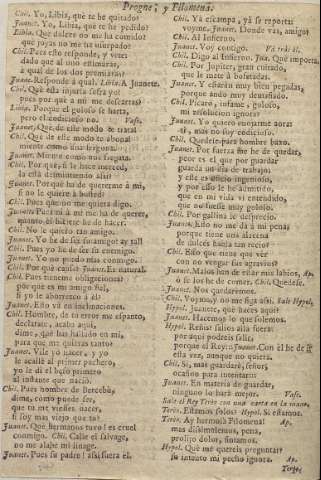 Progne, y Filomena.
Chil. Yo, Libia, què te he quitado?
Juanet. Yo, Libia, què te he pedido?
Libia. Que dalere no me ha comido?
què joyas no me ha usurpado?
Chil. Pues esso responde, y vuestro
dado que al uno estimaras,
à qual de los dos premiaras?
Juanet. Responde à qual. Libia. A Juanete.
Chil. Què esta injuria sufra yo!
pues por què à mi me descartas?
Juanet. Porque el goloso se harta,
pero el codicioso no. Vase.
Juanet. Què, de este modo te trata?
Chil. Que de este modo te abona?
miente como una fregona.
Juanet. Miente como una fregata.
Chil. Por què, si le hace merced,
la està desmintiendo assi?
Juanet. Porquè ha de quererme à mi,
si no le quiere à usted?
Chil. Pues què no me quiera digo.
Juanet. Pues ni à mi me ha de querer,
quanto el hiciere he de hacer.
Chil. No le quiero tan amigo.
Juanet. Yo he de ser su amigo ay tal!
Chil. Pues yo he de ser su enemigo.
Juanet. Yo no puedo mas conmigo.
Chil. Por què causa? Juanet. Es natural.
Chil. Pues tienense obligaciones?
por què es mi amigo fiel,
si yo le aborrezco à èl?
Juanet. Esso và en inclinaciones.
Chil. Hombre, de tu error me espanto,
declarate, acaba aqui,
dime, què has hallado en mi,
para que me quieras tanto?
Juanet. Vile yo nacer, y yo
le acallè al primer puchero,
yo le dì el beso primero
al instante que naciò.
Chil. Pues hombre de Bercebù,
dime, como puede ser,
que tu me viesses nacer,
si soy mas viejo que tu?
Juanet. Què hermanos tuvo! es cruel
conmigo. Chil. Calle el salvage,
no me alabe mi linage.
Juanet. Pues su padre! assi fuera el.
Chil. Ya escampa, yà se reporta;
voyme. Juanet. Donde vas, amigo?
Chil. Al Infierno.
Juanet. Voy contigo. Và tràs èl.
Chil. Digo al Infierno. Jua. Què importa.
Chil. Por Jupiter, gran cuitado,
que le mate à bofetadas.
Juanet. Y estaràn muy bien pegadas,
porque ando muy demasiado.
Chil. Picaro, infame, goloso,
mi resolucion ignora?
Juanet. Yo quiero enojarme aora:
al, mas no soy codicioso.
Chil. Quedese para hombre baxo.
Juanet. Por fuerza me he de quedar,
peor es el que por guardar
guarda un dia de trabajo:
y esse es vicio ingenioso,
y por esso le he admitido,
que en mi vida vi entendido,
que no fuesse muy goloso.
Chil. Por gallina le desprecio.
Juanet. Esso no me dà à mi penas
porque tiene una alacena
de dulces hasta tan recio?
Chil. Esso que tiene què vèr
con no vengar sus agravios?
Juanet. Malos han de estàr mis labios, Ap.
ò se los he de comer. Chil. Quedese.
Juanet. Nos quedaremos.
Chil. Voyme, y no me siga assi. Sale Hypol.
Hypol. Juanete, què haceis aqui?
Juanet. Hacemos lo que solemos.
Hypol. Resis? salios allà fuera:
por aqui podeis salir,
porque el Rey: Juanet. Con èl he de ir
esta vez, aunque no quiera.
Chil. Si, mas guardarè, señor,
ocasion para intentarlo.
Juanet. En materia de guardar,
ninguno lo harà mejor. Vase.
Sale el Rey Terèo con una carta en la mano,
Terèo. Estamos solos? Hypol. Si estamos.
Terèo. Ay hermosa Filomena! Ap.
mas dissimulemos, pena,
prolijo dolor, finjamos.
Hypol. Què me quereis preguntar?
su intento mi pecho ignora. Ap.
Terèo.